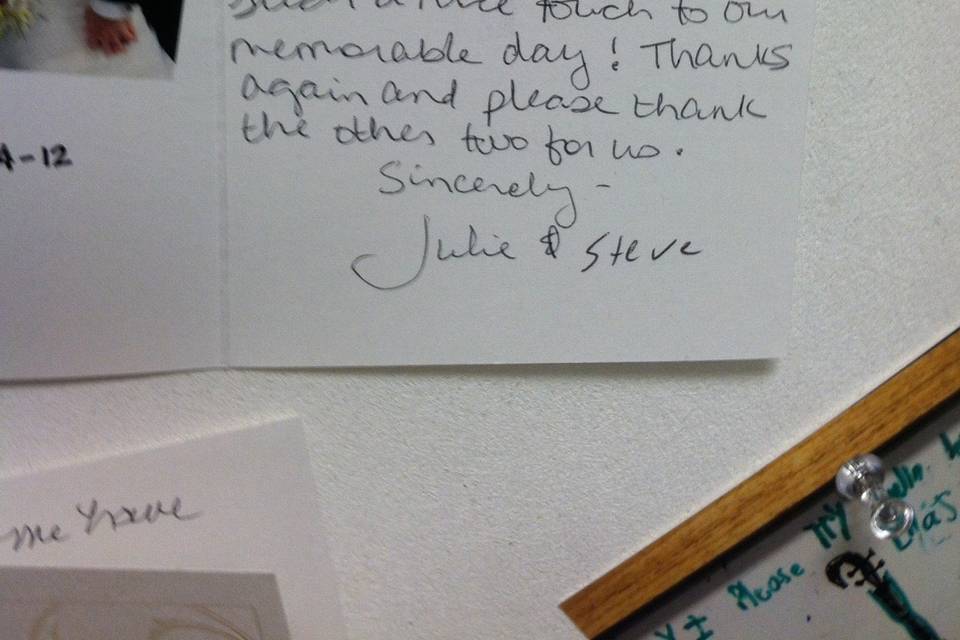 such a nice touch to our
memorable day! Thanks
again and please thank
the other two for us.
Sincerely -
Julie & Steve
4-12
me have
Please
I